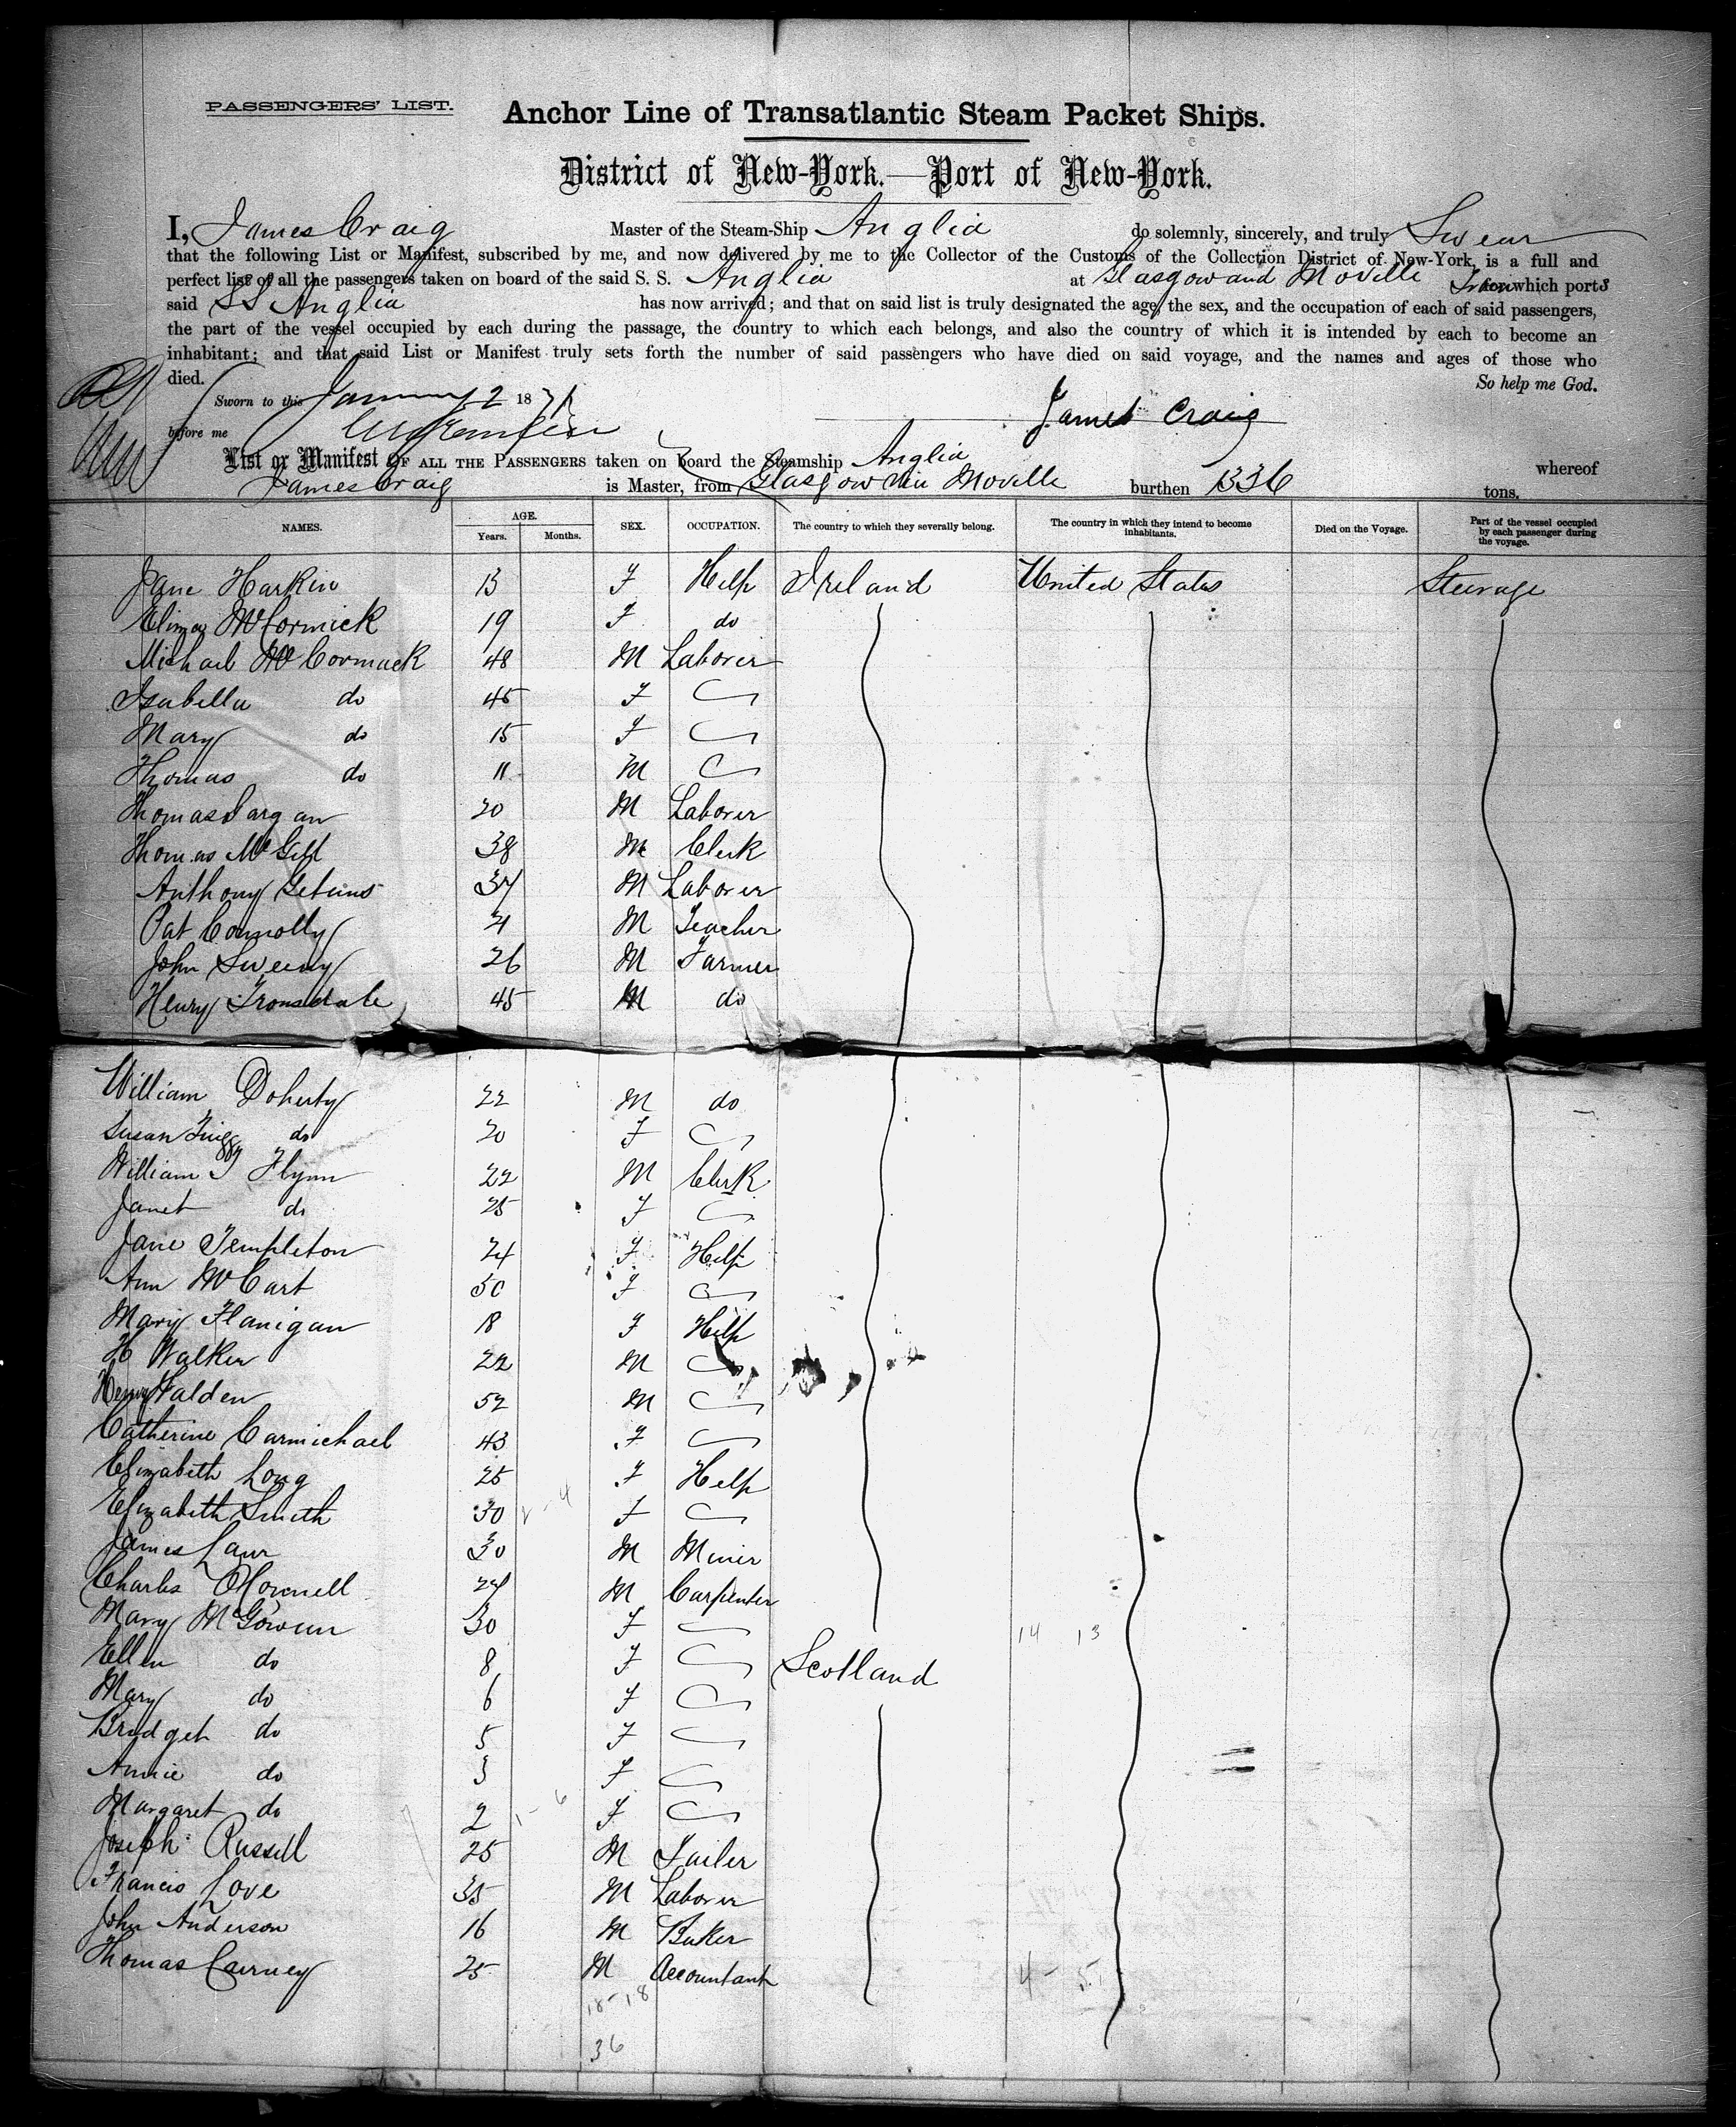 PASSENGERS' LIST.
Anchor Line of Transatlantic Steam Packet Ships.
District of New-York.—Port of New-York.
I, James Craig Master of the Steam-Ship Anglia do solemnly, sincerely, and truly Swear
that the following List or Manifest, subscribed by me, and now delivered by me to the Collector of the Customs of the Collection District of New-York, is a full and
perfect list of all the passengers taken on board of the said S. S. Anglia at Glasgow and Moville from which ports
said SS Anglia has now arrived; and that on said list is truly designated the age, the sex, and the occupation of each of said passengers,
the part of the vessel occupied by each during the passage, the country to which each belongs, and also the country of which it is intended by each to become an
inhabitant; and that said List or Manifest truly sets forth the number of said passengers who have died on said voyage, and the names and ages of those who
died. So help me God.
Sworn to this January 2 1871
James Craig
before me
List or Manifest OF ALL THE PASSENGERS taken on board the Steamship Anglia whereof
James Craig is Master, from Glasgow via Moville burthen 1336 tons.
NAMES. AGE. Years. Months. SEX. OCCUPATION. The country to which they severally belong. The country in which they intend to become inhabitants. Died on the Voyage. Part of the vessel occupied by each passenger during the voyage.
Jane Harkin 13 F Help Ireland United States Steerage
Eliza McCormick 19 F do
Michael McCormack 48 M Laborer
Isabella do 45 F
Mary do 15 F
Thomas do 11 M
Thomas 20 M Laborer
Thomas McGill 38 M Clerk
Anthony 37 M Laborer
Pat Connolly 21 M Teacher
John Sweeny 26 M Farmer
Henry Tronsdale 45 M do
William Doherty 22 M do
Susan do 20 F
William J Flynn 22 M Clerk
Janet do 25 F
Jane Templeton 24 F Help
Ann McCart 50 F
Mary Flanigan 18 F Help
H Walker 22 M
Henry Walden 52 M
Catherine Carmichael 43 F
Elizabeth Long 25 F Help
Elizabeth Smith 30 F
James Laur 30 M Miner
Charles O'Connell 24 M Carpenter
Mary McGowan 30 F 14 13
Ellen do 8 F Scotland
Mary do 6 F
Bridget do 5 F
Annie do 3 F
Margaret do 2 F
Joseph Russell 25 M Tailer
Francis Love 35 M Laborer
John Anderson 16 M Baker
Thomas Cairney 25 M Accountant 4 - 5
18-18
36